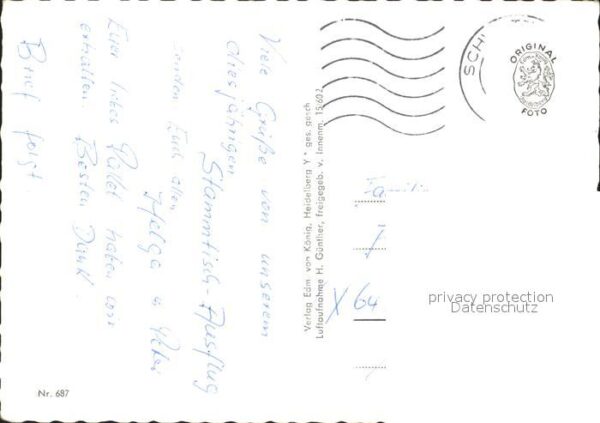 Viele Grüße von unserem
diesjährigen
Stammtisch-Ausflug
senden Euch allen
Helga u. Peter
Euer liebes Paket haben wir
erhalten. Besten Dank.
Brief folgt.
Nr. 687
Verlag Edm. von König, Heidelberg Y * ges. gesch
Luftaufnahme H. Günther, freigegeb. v. Innenm. 15602
SCH
ORIGINAL
FOTO
Famili
X 64
privacy protection
Datenschutz